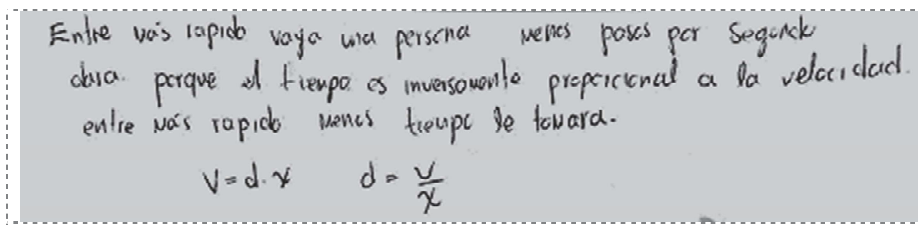 Entre más rapido vaya una persona menos pasos por segundo
dara. porque el tiempo es inversamente proporcional a la velocidad.
entre más rapido menos tiempo le tomara.
V = d · x d = V/x